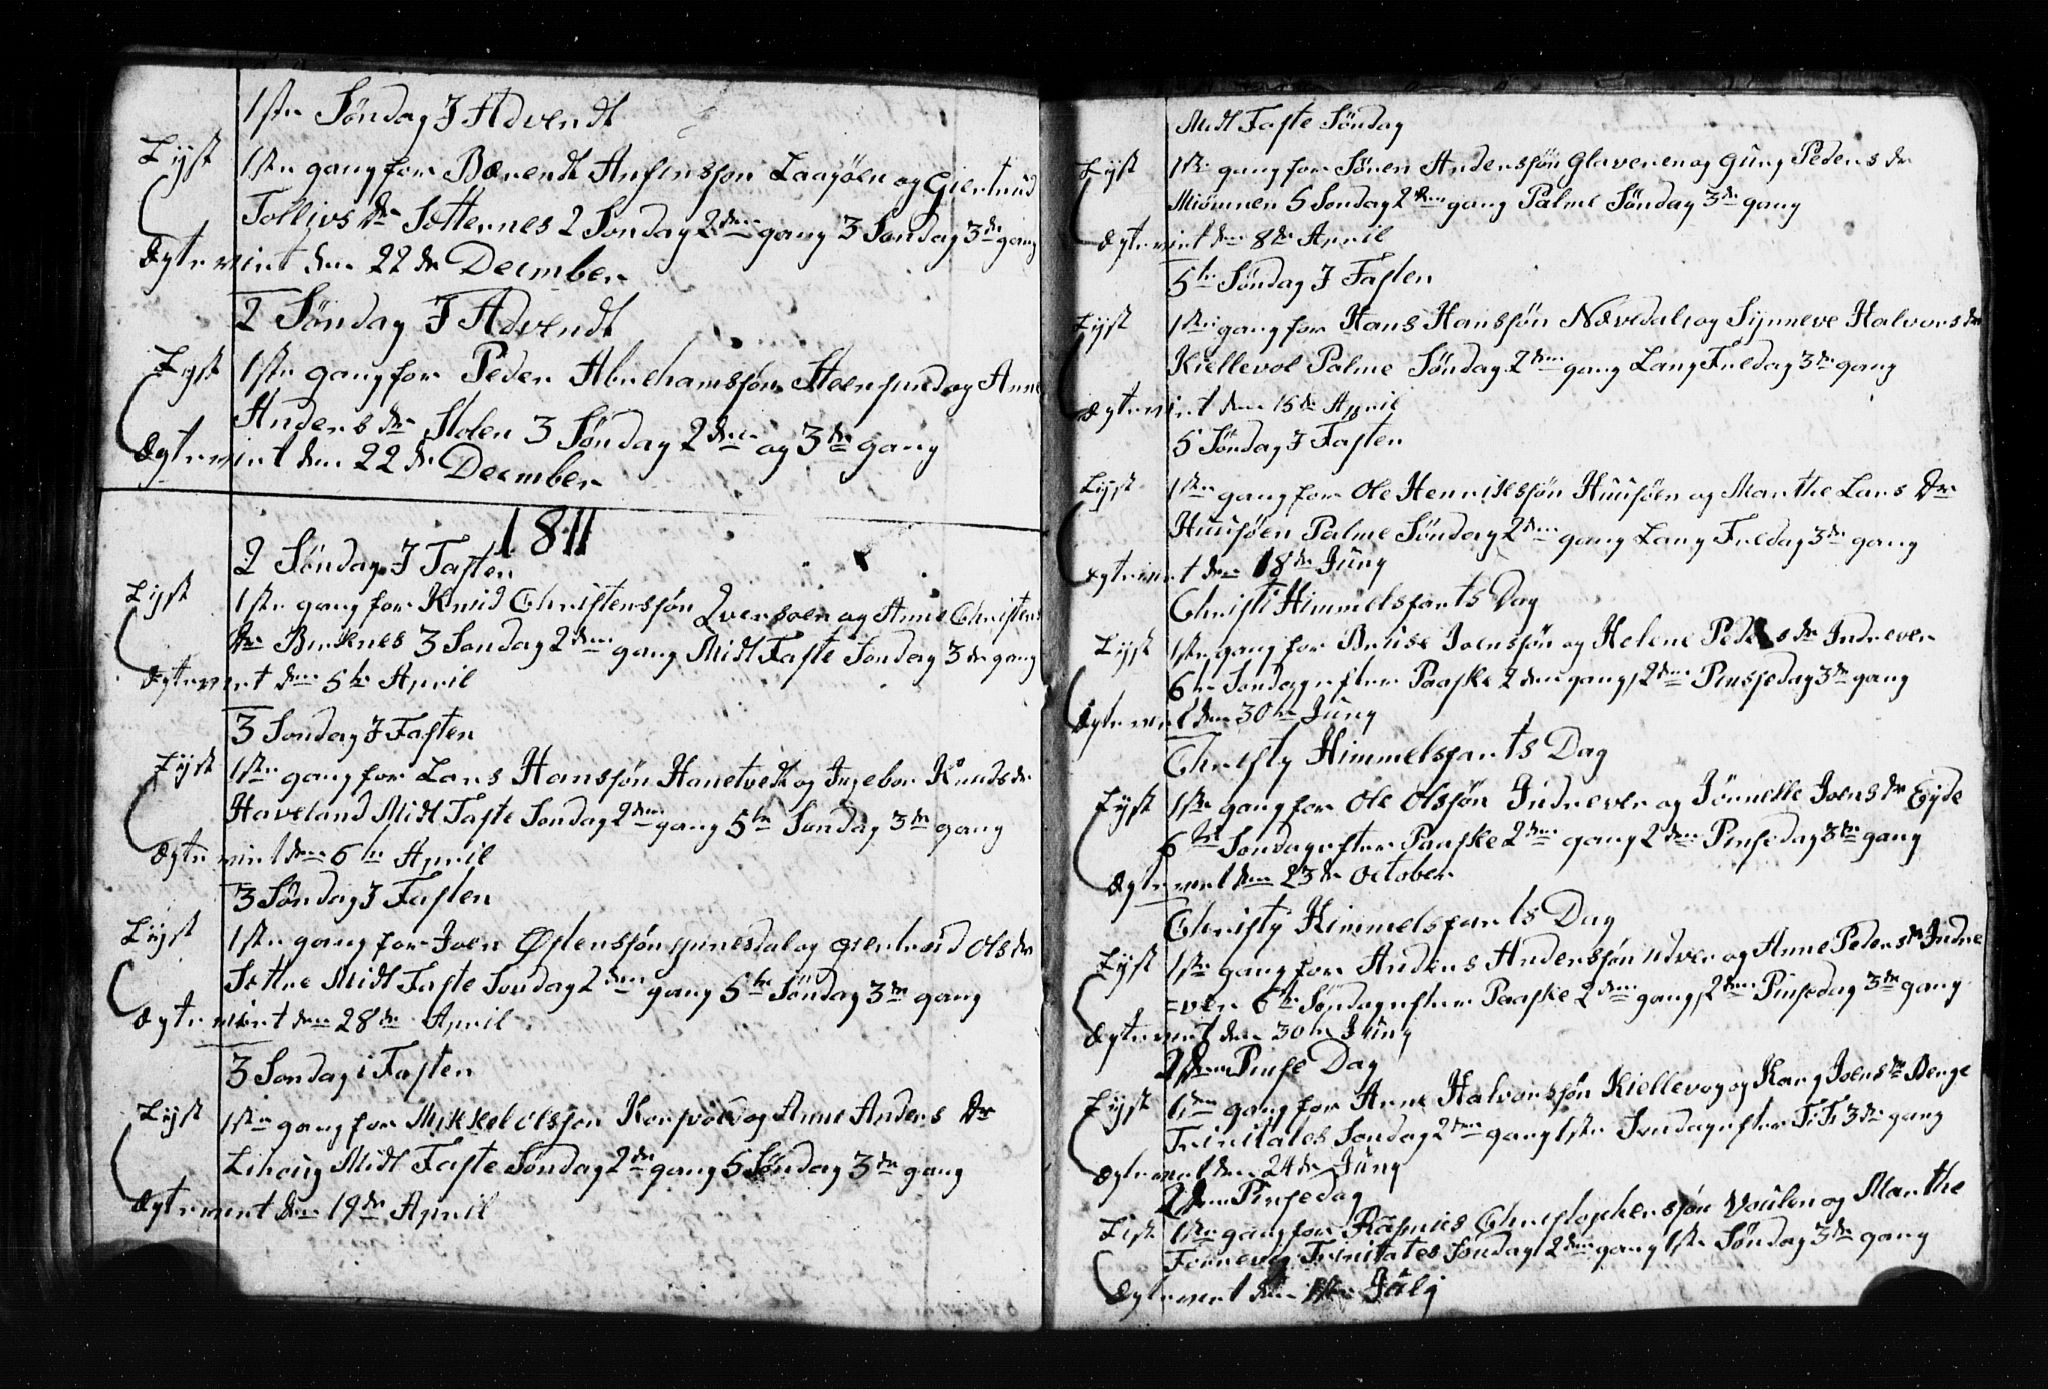 1ste Søndag J Advendt
Lyst 1ste gang for Bærendt Ansensson Laagøen og Giertrud
Tollivs dr Sotternes 2 Søndag 2den gang 3 Søndag 3de gang
Ægteviet den 22de December
2 Søndag J Advendt
Lyst 1ste gang for Peder Abrehamssøn Steensund og Anne
Anders dr Stolen 3 Søndag 2den og 3de gang
Ægteviet den 22de December
1811
2 Søndag J Fasten
Lyst 1ste gang for Knud Christenssøn og Anne Christens
dr Birkenes 3 Søndag 2den gang Midt Faste Søndag 3de gang
Ægteviet den 5te April
3 Søndag J Fasten
Lyst 1ste gang for Lars Hanssøn Hanetvedt og Ingebor Knuds dr
Haveland Midt Faste Søndag 2den gang 5te Søndag 3de gang
Ægteviet den 6te April
3 Søndag J Fasten
Lyst 1ste gang for Joen Østenssøn og Giertrud Ols dr
Midt Faste Søndag 2den gang 5te Søndag 3de gang
Ægteviet den 28de April
3 Søndag i Fasten
Lyst 1ste gang for Mikkel olssøn og Anne Anders dr
Midt Faste Søndag 2de gang 5 Søndag 3de gang
Ægteviet den 19de April
Midt Faste Søndag
Lyst 1ste gang for Sören Anderssøn Glaveren og Guny Peders dr
Miømnen 5 Søndag 2den gang Palme Søndag 3de gang
Ægteviet den 8de April
5te Søndag J Fasten
Lyst 1ste gang for Hans Hanssøn Nævedal og Synneve Halvors dr
Kiellevol Palme Søndag 2den gang Lang Fredag 3de gang
Ægteviet den 15de April
5 Søndag J Fasten
Lyst 1ste gang for Ole Henrikssøn Huusøen og Marthe Lars dr
Huusøen Palme Søndag 2den gang Lang Fredag 3de gang
Ægteviet den 18de Juny
Christi Himmelsfarts Dag
Lyst 1ste gang for Bruse Joenssøn og Helene Peders dr Indrever
6te Søndag efter Paaske 2den gang, 2den Pinsedag 3de gang
Ægteviet den 30te Juny
Christy Himmelsfarts Dag
Lyst 1ste gang for Ole Olssøn Indrever og Jørnelle Joens dr Eyde
6te Søndag efter Paaske 2den gang 2den Pinsedag 3de gang
Ægteviet den 23de October
Christy Himmelsfarts Dag
Lyst 1ste gang for Anders Anderssøn Udver og Anne Peders dr Indre
=ver 6te Søndag efter Paaske 2den gang, 2den Pinsedag 3de gang
Ægteviet den 30te Juny
2den Pinse Dag
Lyst gang for Arne Halvorssøn Kiellevog og Kary Joens dr Berge
Trinitates Søndag 2den gang 1ste Søndag efter Tr: 3de gang
Ægteviet den 24de Juny
2den Pinsedag
Lyst 1ste gang for Rasmus Christophersøn Voulen og Marthe
Fornevig Trinitates Søndag 2den gang 1ste Søndag 3de gang
Ægteviet den 1ste July